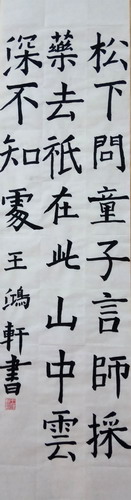 松下問童子言師採
藥去祇在此山中雲
深不知處王鴻軒書